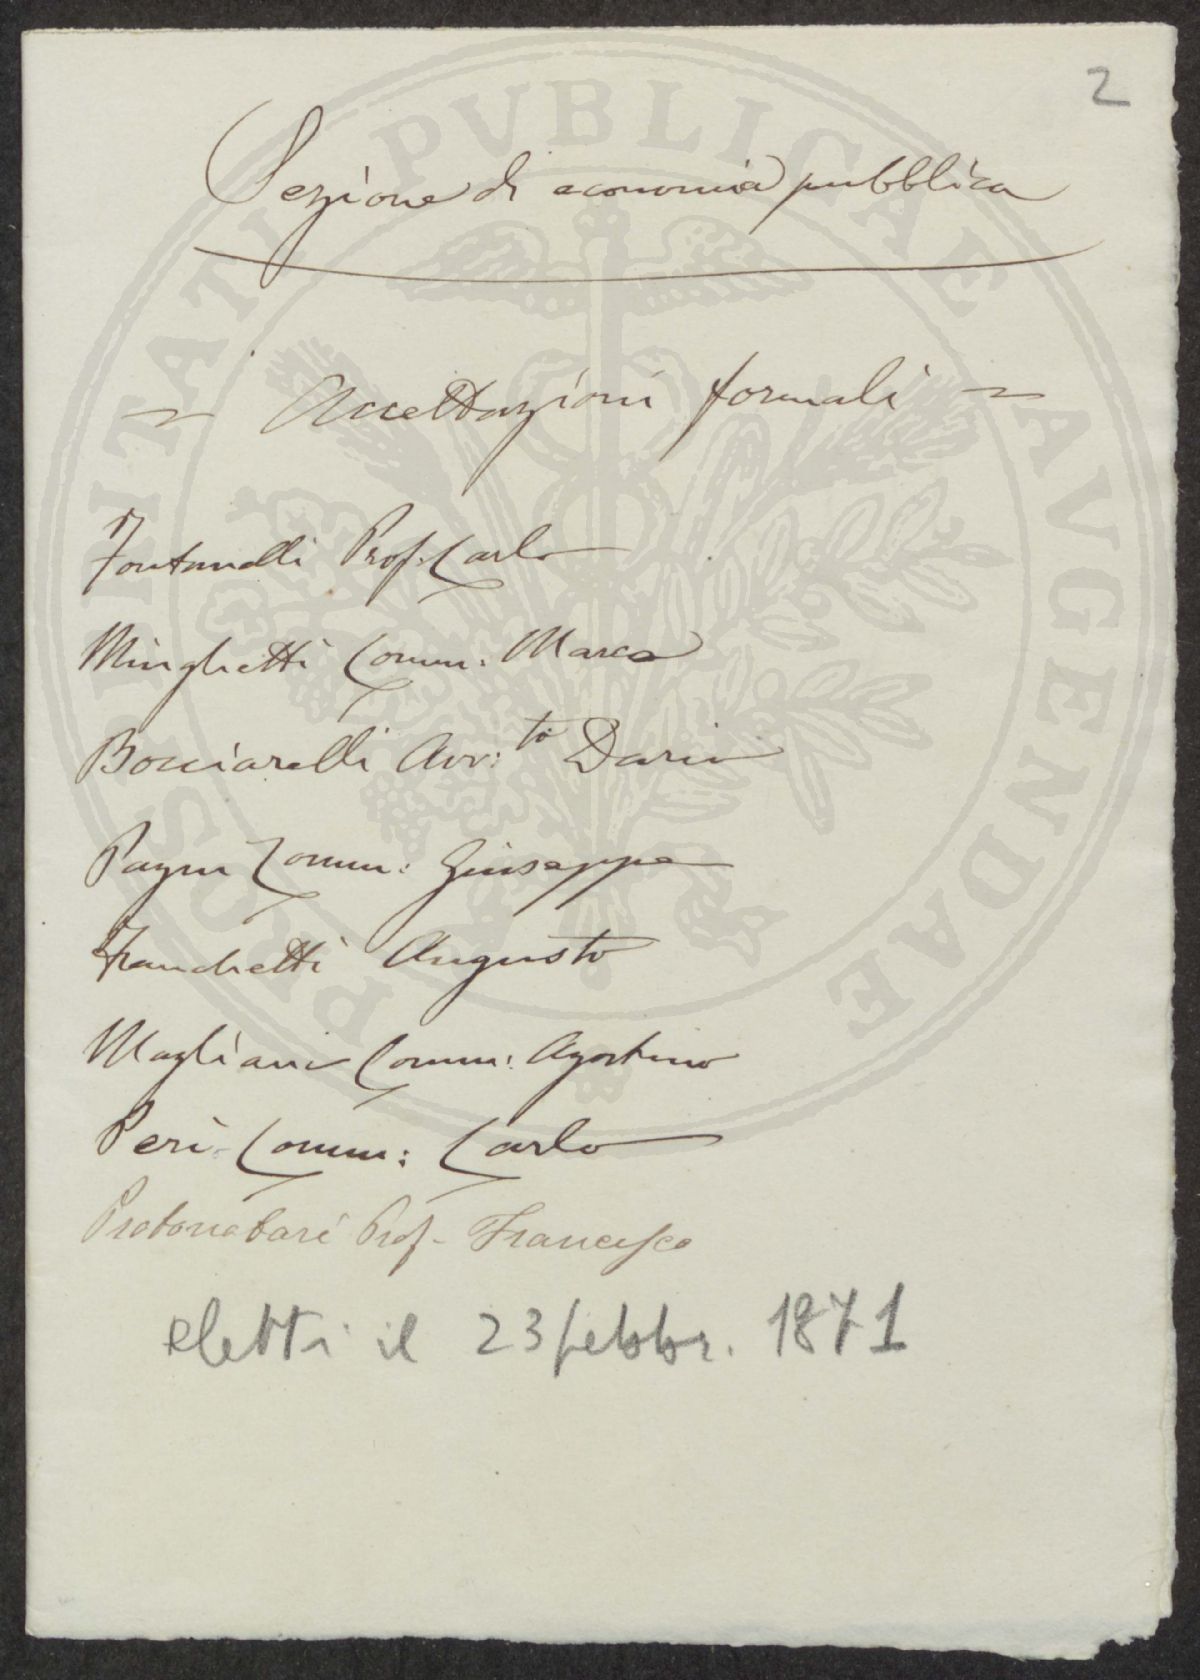 2
Sezione di economia pubblica
Accettazioni formali
Fontanelli Prof. Carlo
Minghetti Comm: Marco
Bocciarelli Avv:to Dario
Comm: Giuseppe
Franchetti Augusto
Magliani Comm: Agostino
Peri Comm: Carlo
Protonotari Prof. Francesco
eletti il 23 febbr. 1871
PROSPERITATI PVBLICAE AVGENDAE